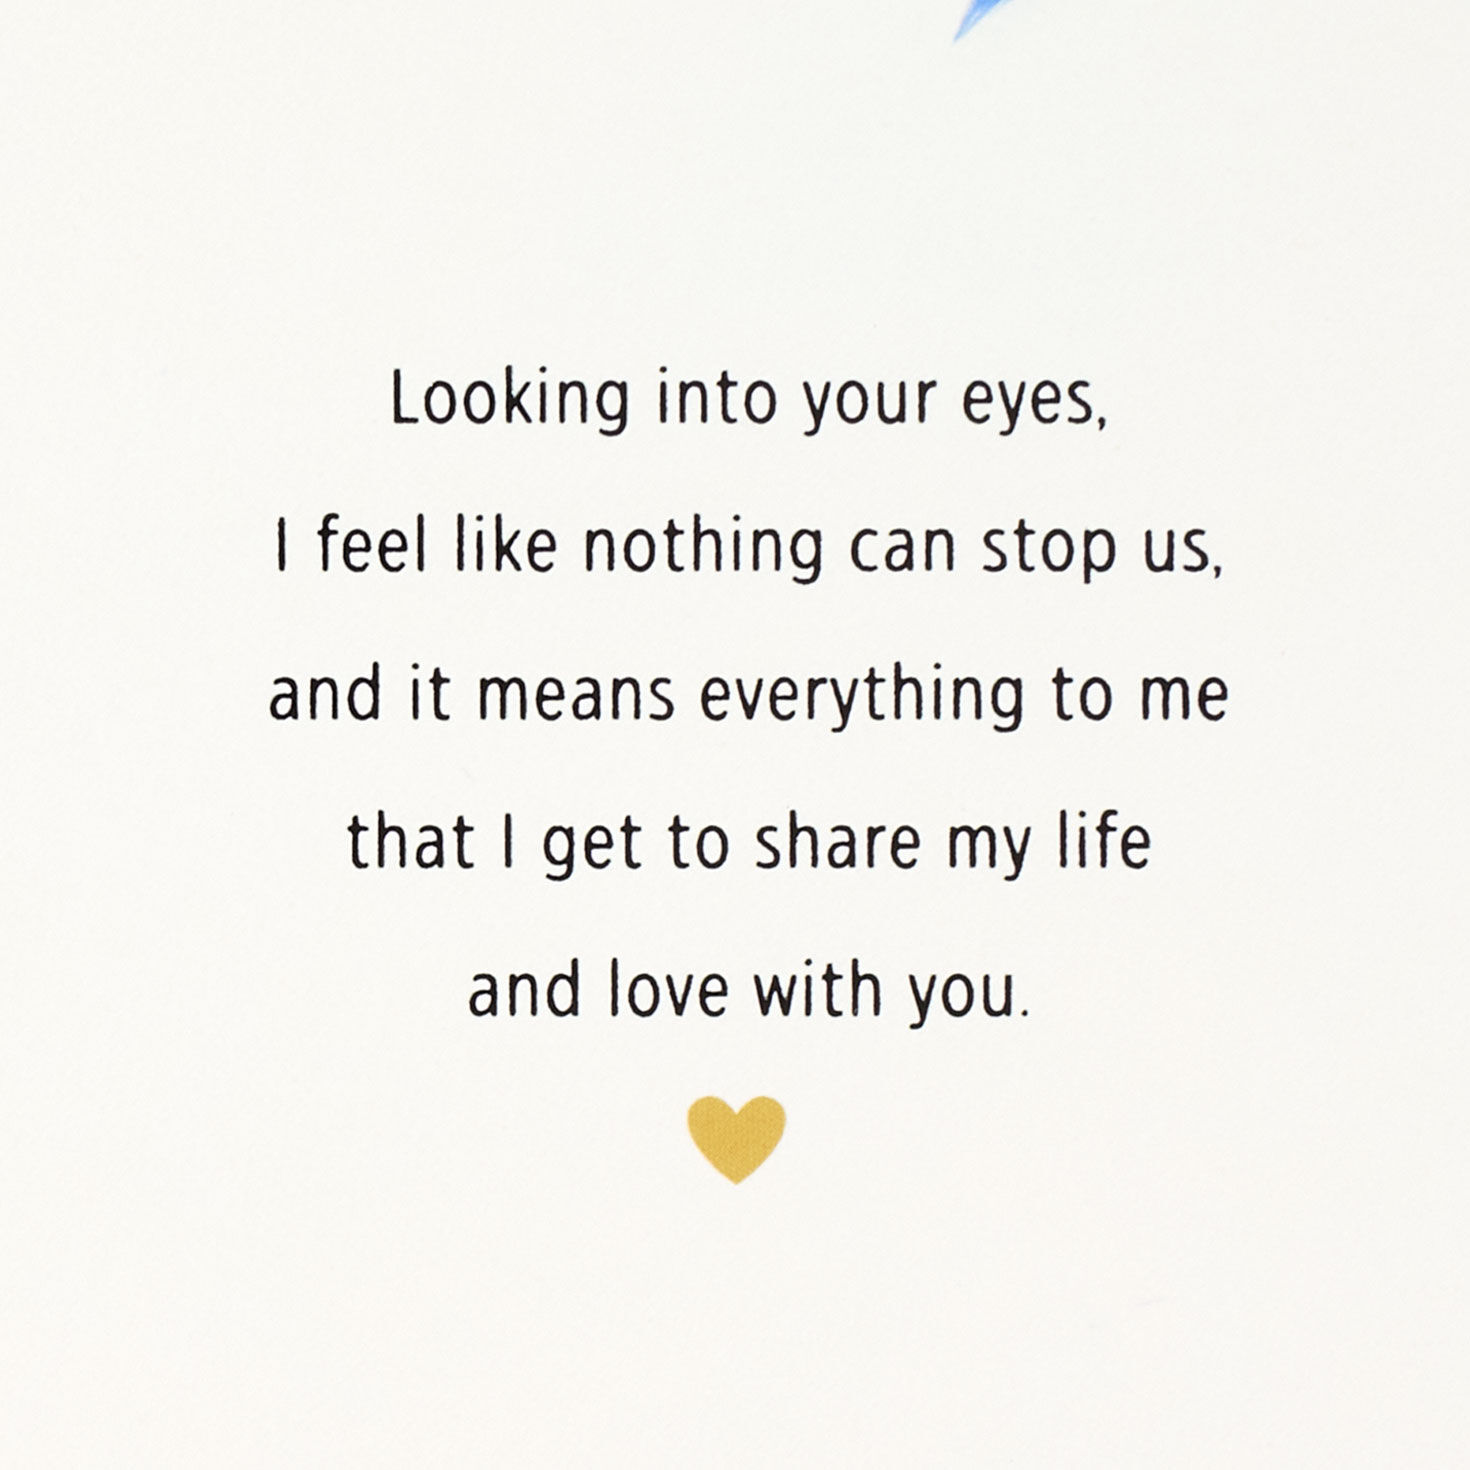 Looking into your eyes,
I feel like nothing can stop us,
and it means everything to me
that I get to share my life
and love with you.